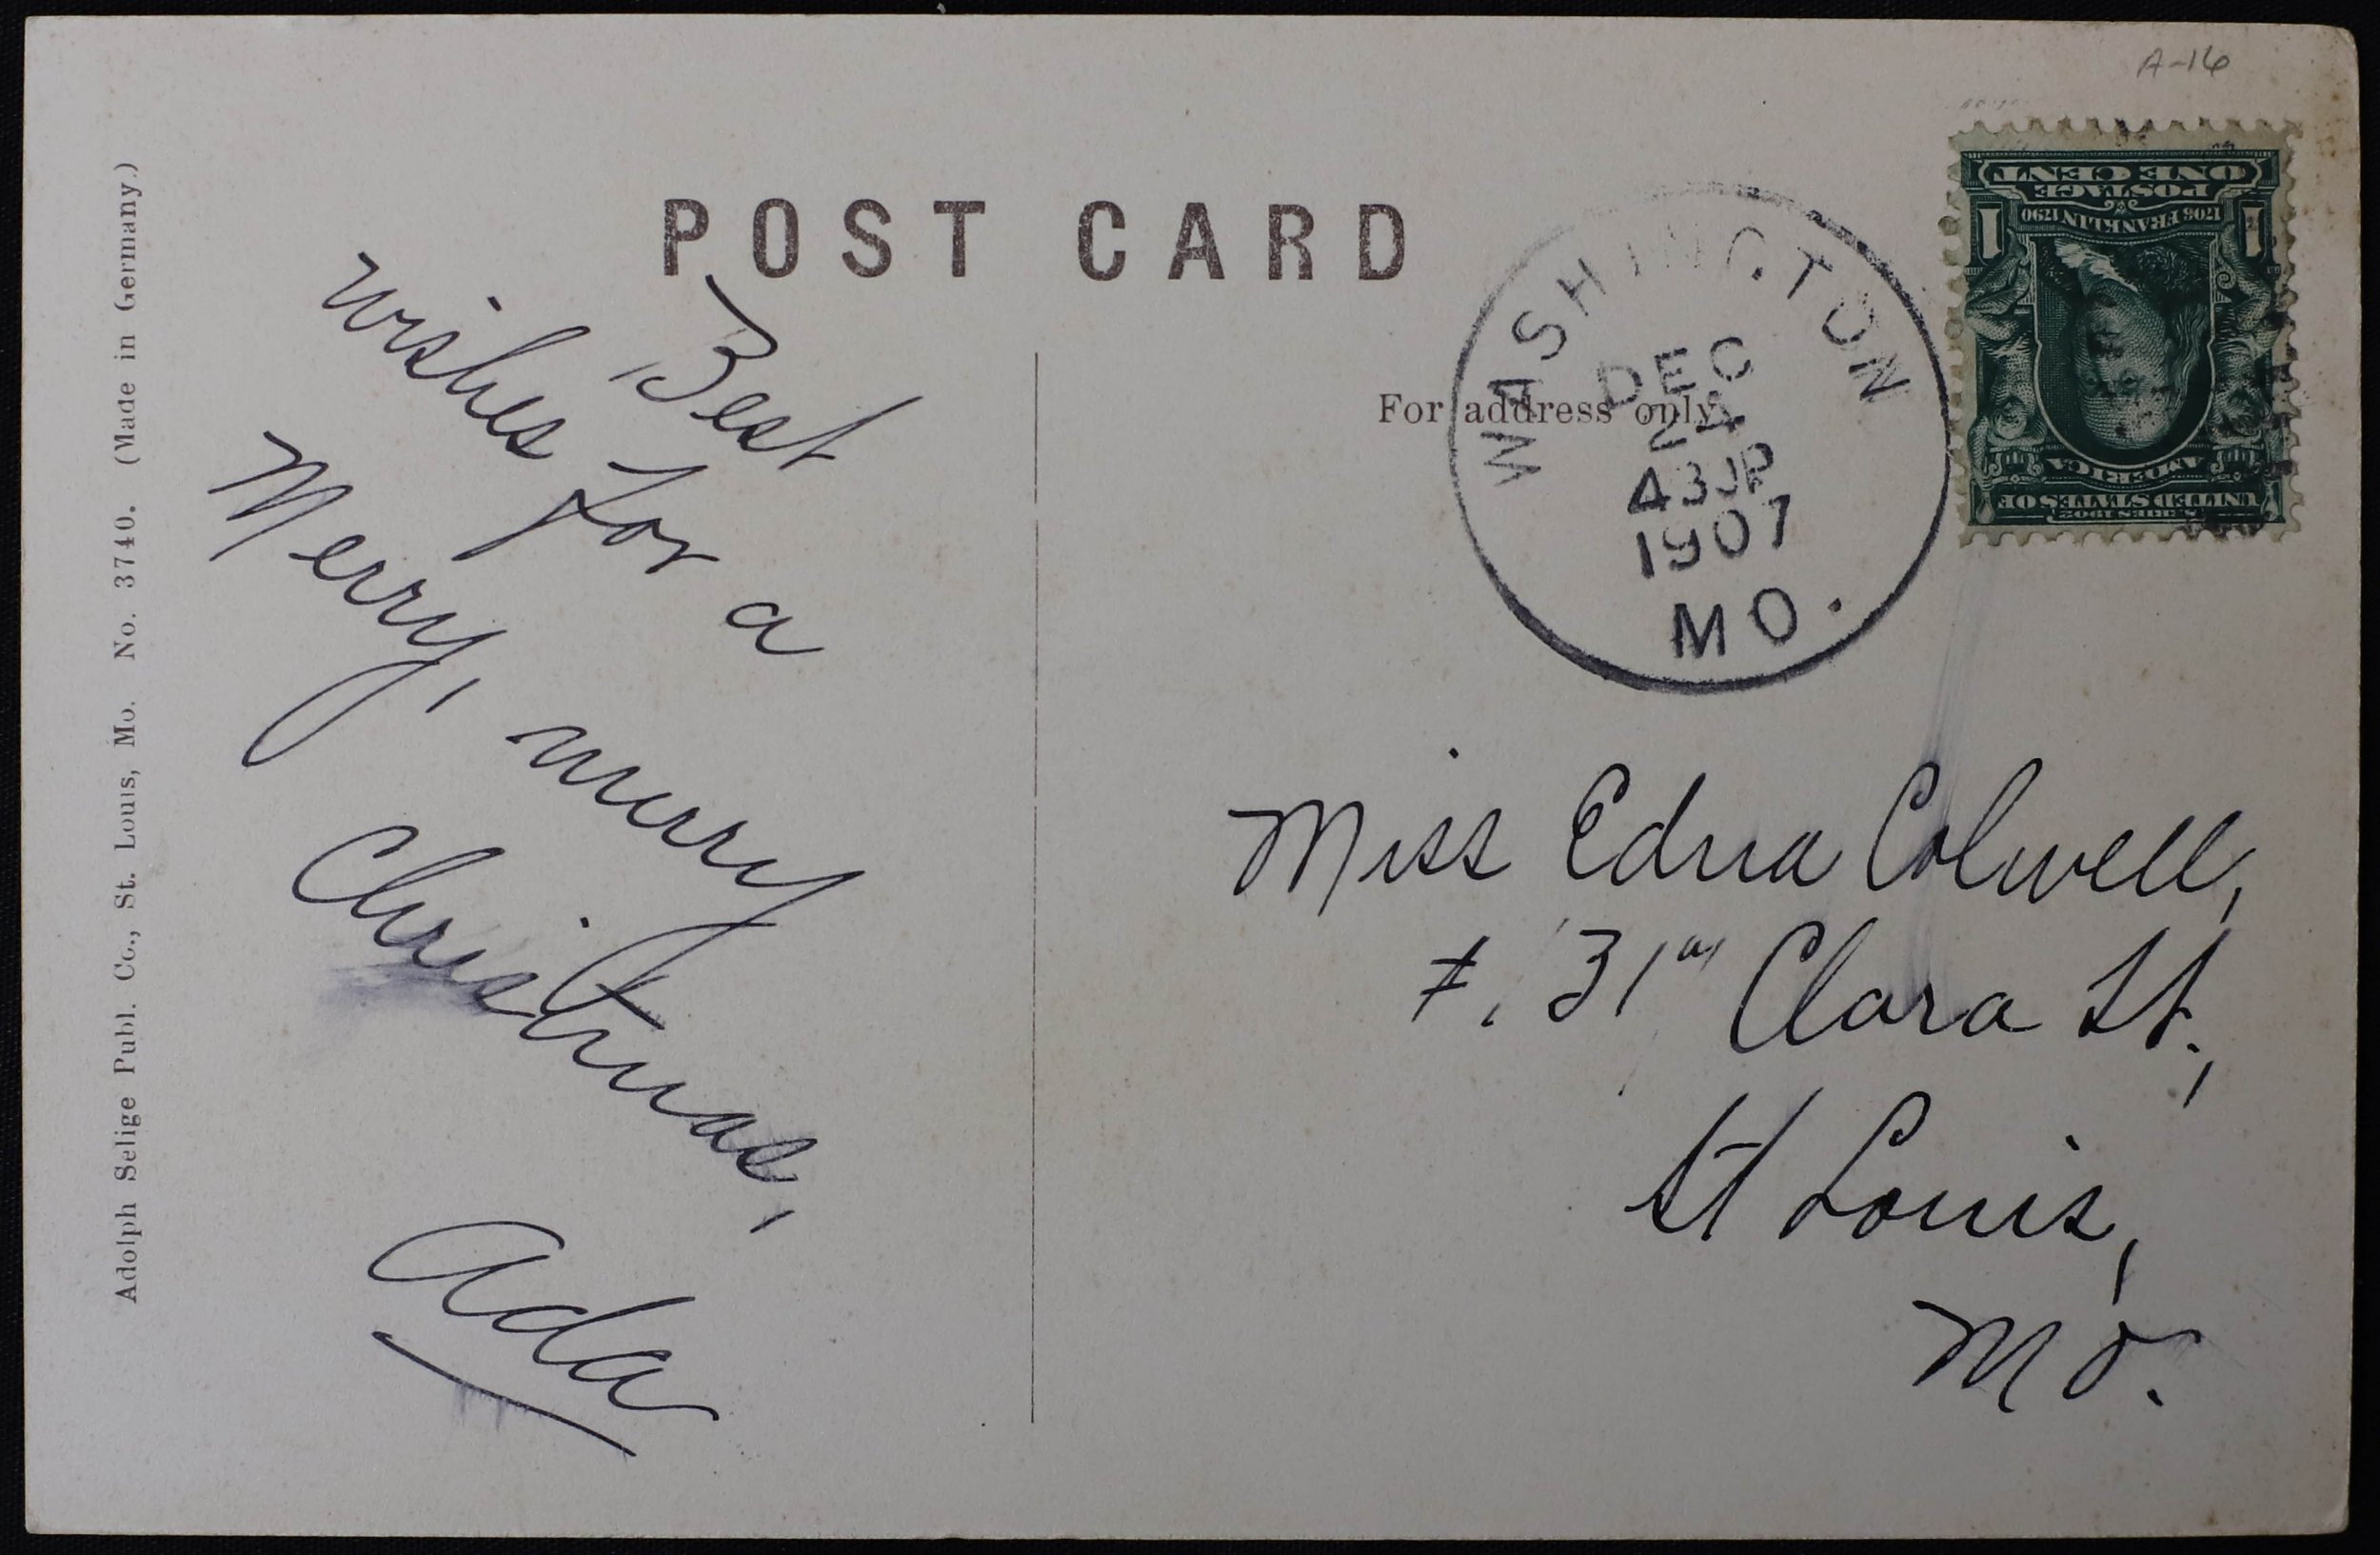 A-16
POST CARD
For address only.
WASHINGTON
DEC
24
430P
1907
MO.
ONE CENT
POSTAGE
1706 FRANKLIN 1790
1 1
AMERICA
UNITED STATES OF
SERIES 1902
Adolph Selige Publ. Co., St. Louis, Mo. No. 3740. (Made in Germany.)
Best
wishes for a
Merry, merry
Christmas,
Ada
Miss Edna Colwell,
Clara St.,
St Louis,
Mo.